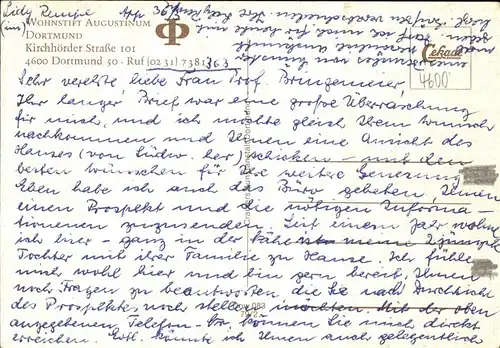 App. 363
WOHNSTIFT AUGUSTINUM
DORTMUND
Kirchhörder Straße 101
4600 Dortmund 50 · Ruf (02 31) 7381/363
Cekade
4600
Sehr verehrte, liebe Frau Prof. Bringemeier,
Ihr langer Brief war eine große Überraschung
für mich, und ich möchte gleich Ihrem Wunsch
nachkommen und Ihnen eine Ansicht des
Hauses (von Südw. her) schicken – mit den
besten Wünschen für Ihre weitere Genesung.
Eben habe ich auch das Büro gebeten, Ihnen
einen Prospekt und die nötigen Informa-
tionen zuzusenden. Seit einem Jahr wohne
ich hier – ganz in der Nähe meine
Tochter mit ihrer Familie zu Hause. Ich fühle
mich wohl hier und bin gern bereit, Ihnen
noch Fragen zu beantworten, die Sie nach Durchsicht
des Prospektes noch stellen möchten. Mit der oben
angegebenen Telefon-Nr. können Sie mich direkt
erreichen. Evtl. könnte ich Ihnen auch gelegentlich